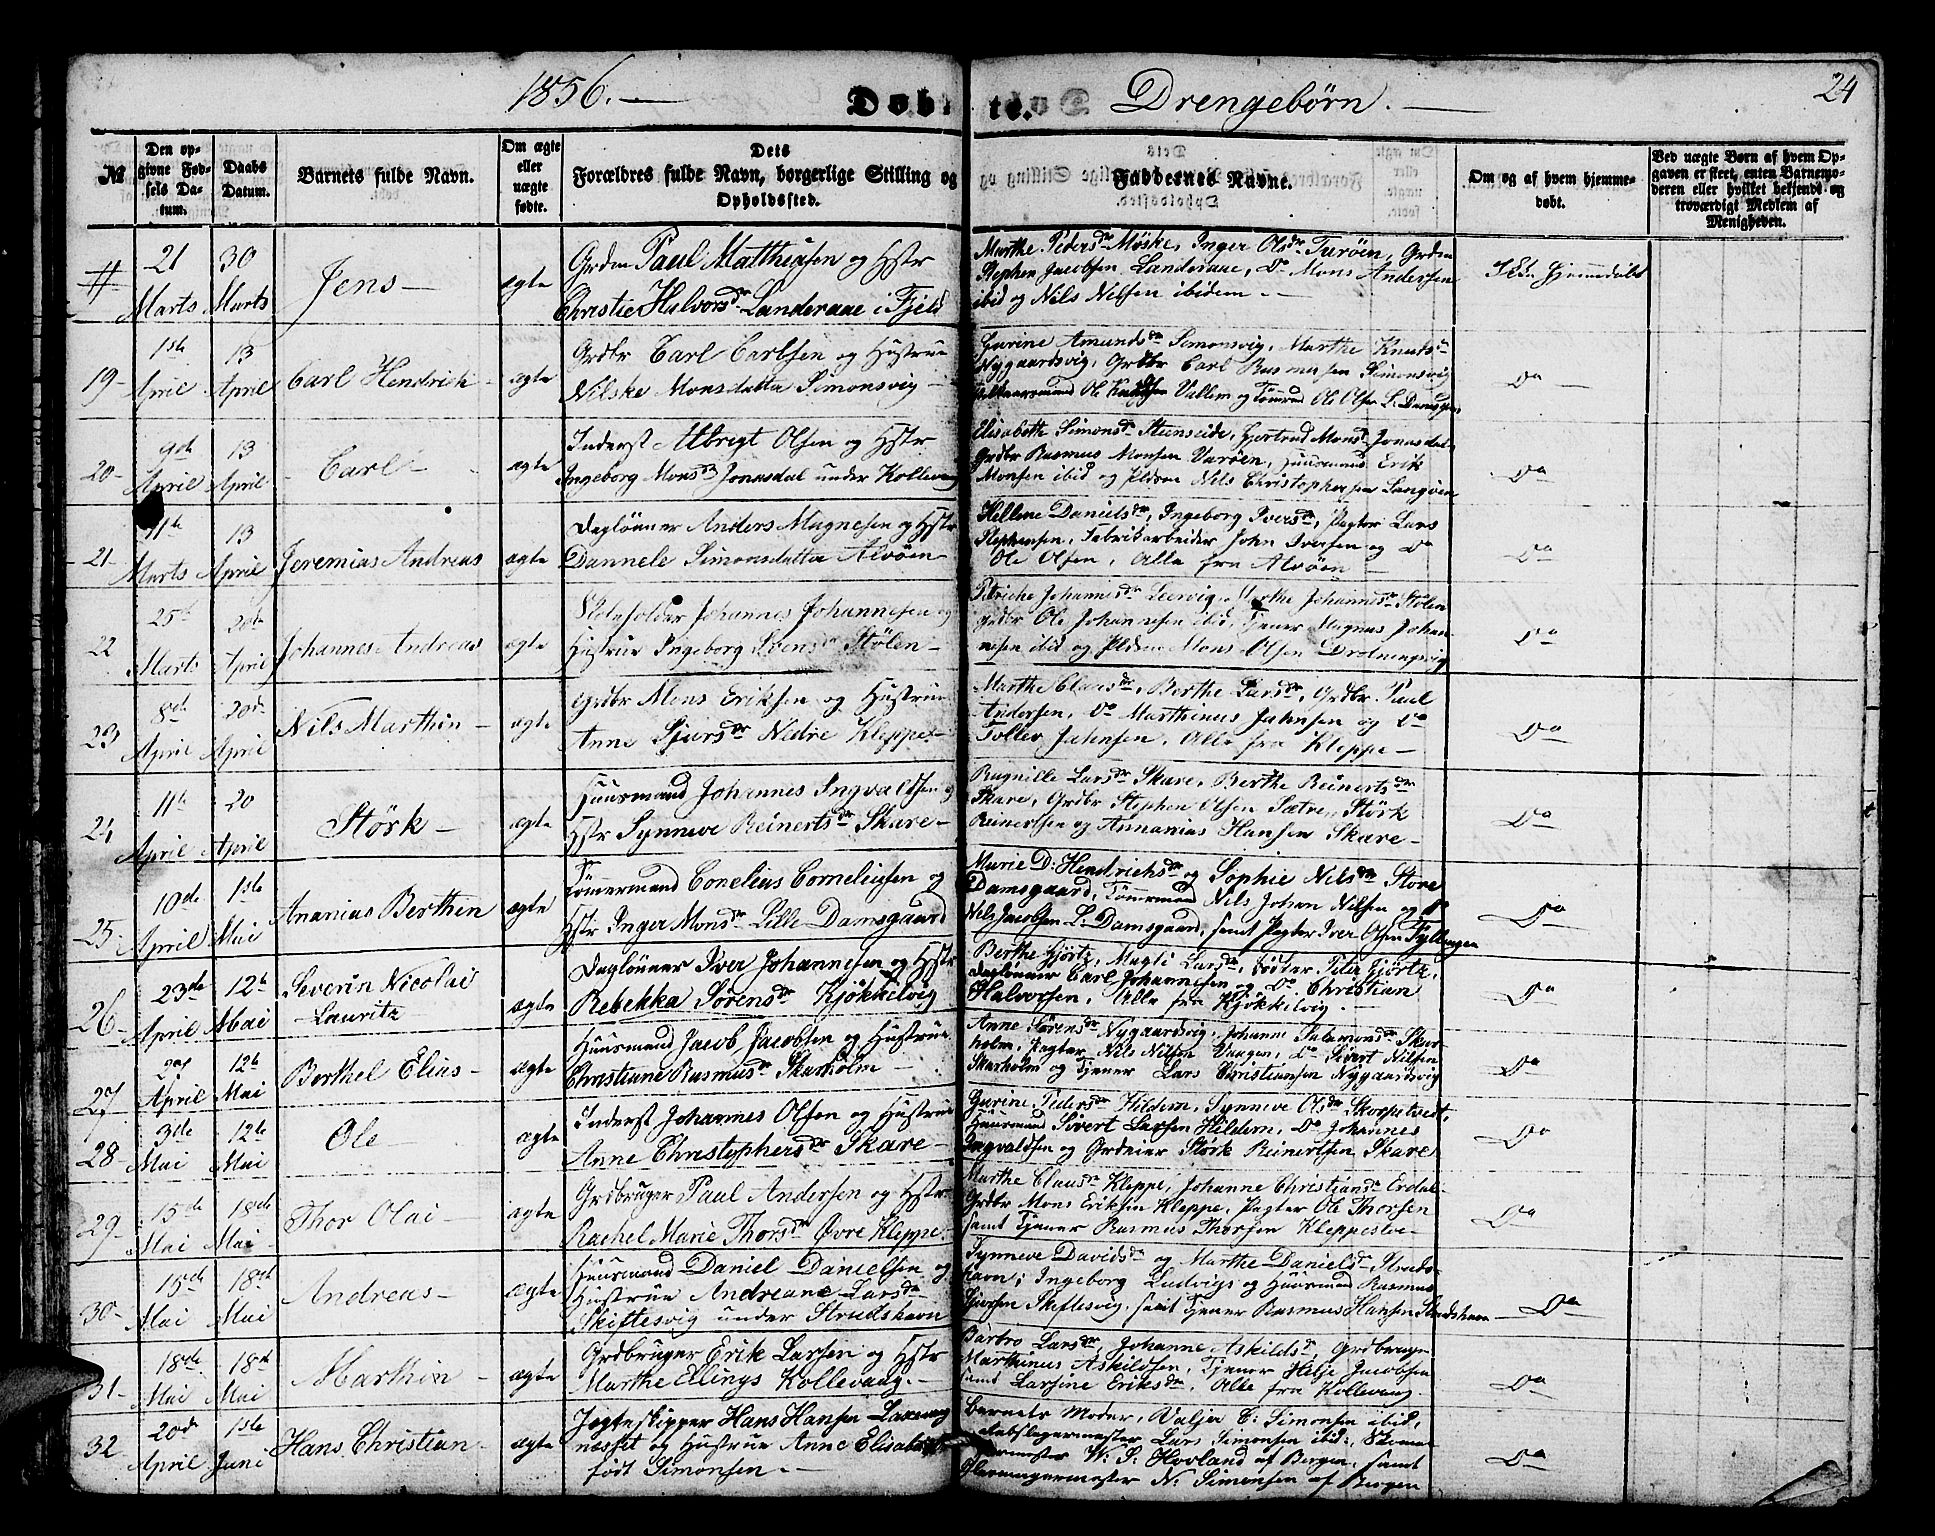 1856. — Døbte. Drengebørn. — 24
№ | Den opgivne Fødsels Datum. | Daabs Datum. | Barnets fulde Navn. | Om ægte eller uægte fødte. | Dets Forældres fulde Navn, borgerlige Stilling og Opholdssted. | Faddernes Navne. | Om og af hvem hjemmedøbt. | Ved uægte Børn af hvem Opgaven er skeet, enten Barnemoderen eller hvilket bekjendt og troværdigt Medlem af Menigheden.
# 21 Marts 30 Marts Jens — ægte
Grdm Paul Matthiasen og Hstr
Christie Halvorsdr Landeraae i Fjeld
Marthe Pedersdr Møske, Inger Olsdr Turöen, Grdm
Stephen Jacobsen Landeraae, Do Mons Andersen
ibid og Nils Nilsen ibidem. —
Hjemmedöbt
19 - 1ste April 13 April Carl Hendrich - ægte
Grdbr Carl Carlsen og Hustrue
Nilske Monsdatter Simonsvig —
Gurine Amundsdr Simonsvig, Marthe Knudsdr
Nygaardsvig, Grdbr Carl Rasmusen Simonsvig
Ole Knudsen Vallem og Tømrmd Ole Olsen L. Damsgrd
Do —
20 - 9de April 13 April Carl - ægte
Inderst Albrigt Olsen og Hstr
Ingeborg Monsdr Jonasdal under Kollevaag
Elisabethe Simonsdr Steinseide, Gjertrud Monsd Jonasdal
Grdbr Rasmus Monsen Varöen, Huusmand Erik
Monsen ibid og Pldsm Nils Christophersen Langöen
Do
21 - 11te Marts 13 April Jeremias Andreas ægte
Daglönner Anders Magnesen og Hstr
Dannele Simonsdatter Alvöen —
Hellene Danielsdr, Ingeborg Iversdr, Pagter Lars
Stephensen, Fabrikarbeider John Iversen og Do
Ole Olsen, Alle fra Alvöen —
Do
22 25d Marts 20de April Johannes Andreas ægte
Johannes Johannesen og
Hustrue Ingeborg Stølen —
Johannesdr Leervig, Marthe Johannesdr Stølen
Grdbr Ole Johannesen ibid, Tjener Magnus Johannesen
ibid og Pldsm Mons Olsen Drotningsvig
Do
23 8de April 20de April Nils Marthin - ægte
Grdbr Mons Eriksen og Hustrue
Anne Sjursdr Nedre Kleppe —
Marthe Claesdr, Berthe Larsdr, Grdbr Paul
Andersen, Do Marthinus Jahnsen og Do
Tollev Jahnsen, Alle fra Kleppe —
Do
24 11te April 20 April Størk — ægte
Huusmand Johannes Ingvaldsen og
Hstr Synneve Reinertsdr Skare —
Ragnille Larsdr Skare, Berthe Reinertsdr
Skare, Grdbr Stephen Olsen Sætre, Størk
Reinertsen og Annanias Hansen Skare —
Do
25 - 10de April 1ste Mai Ananias Berthin ægte
Tömmermand Conelius Corneliusen og
Hstr Inger Monsdr Lille Damsgaard
Marie D: Hendrichsdr og Sophie Nilsdr Store
Damsgaard, Tömrmand Nils Johan Nilsen og Do
Nils Jacobsen L. Damsgaard, samt Pagter Iver Olsen Fyllingen
Do
26 - 23de April 12te Mai Severin Nicolai Lauritz ægte
Daglönner Iver Johannesen og Hstr
Rebekka Sørensdr Kjøkkelvig
Berthe Hjörtz, Magli Larsdr, Peter Hjörtz,
Daglönner Carl Johannesen og Do Christian
Halvorsen, Alle fra Kjøkkelvig -
Do
27 April 12te Mai Berthel Elias - ægte
Huusmand Jacob Jacobsen og Hustrue
Christiane Rasmusdr Skarholm —
Anne Sörensdr Nygaardsvig, Johanne Salamonsdr Skarholm,
Pagter Nils Nilsen Vaagen, Do Sivert Nilsen
Skarholm og Tjener Lars Christiansen Nygaardsvig
Do
28 - 3de Mai 12te Mai Ole - ægte
Inderst Johannes Olsen og Hustrue
Anne Christophersdr Skare —
Gurine Pedersdr Hildern, Synneve Olsdr Skorpetvedt,
Huusmand Sivert Larsen Hildern, Do Johannes
Ingvaldsen og Grdeier Størk Reinertsen Skare
Do
29 - 15de Mai 18de Mai Thor Olai - ægte
Grdbruger Paul Andersen og Hstr
Rachel Marie Thorsdr Øvre Kleppe -
Marthe Clausdr Kleppe, Johanne Christiansdr Erdal
Grdbr Mons Eriksen Kleppe, Pagter Ole Thorsen
samt Tjener Rasmus Thorsen Kleppestøe —
Do
30 - 15de Mai 18de Mai Andreas - ægte
Huusmand Daniel Danielsen og
Hustrue Andreane Larsdr
Skiftesvig under Strudshavn
Synneve Davidsdr og Marthe Danielsdr Strudshavn,
Ingeborg Ludvigs og Huusmand Rasmus
Skiftesvig, samt Tjener Rasmus Hansen Strudshavn —
Do
31 - 18de Mai 18de Mai Marthin - ægte
Grdbruger Erik Larsen og Hstr
Marthe Ellings Kollevaag. —
Barbro Larsdr, Johanne Askildsdr, Grdbruger
Marthinus Askildsen, Tjener Helje Jacobsen
samt Larsine Eriksdr, Alle fra Kollevaag.
Do
32 20de April 1ste Juni Hans Christian - ægte
Jægteskipper Hans Hansen Laxevaagnæsset
og Hustrue Anne Elisabeth
født Simonsen. —
Barnets Moder, Valja C: Simonsen ibid,
Lars Simonsen ibid:,
W. S. Hovland af Bergen, samt
Glarmagermester N: Simonsen af Bergen
Do